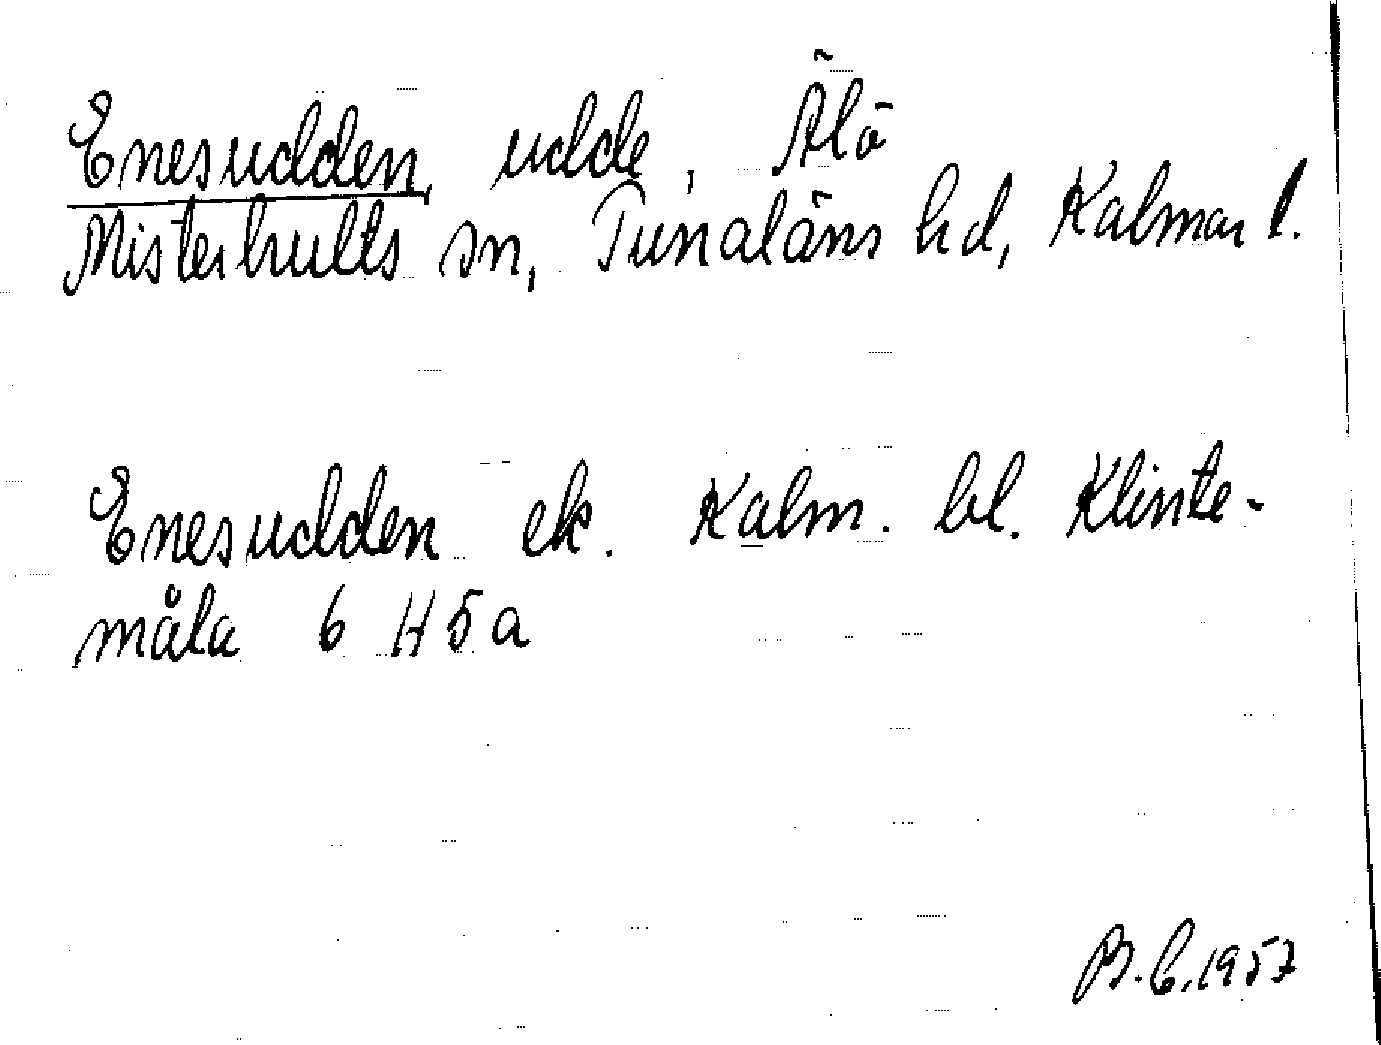 Enesudden, udde, Älö
Misterhults sn, Tunaläns hd, Kalmar l.
Enesudden ek. Kalm. bl. Klinte-
måla 6 H 5 a
B. C. 1957